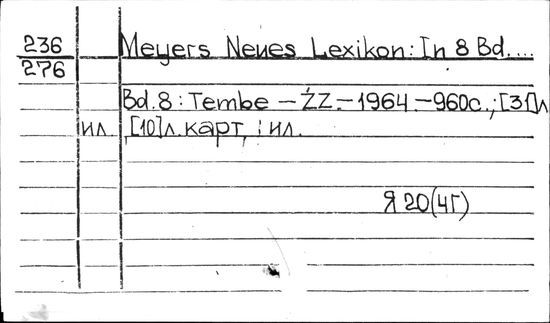 236 Meyers Neues Lexikon: In 8 Bd....
276
Bd. 8: Tembe – ŻZ. – 1964 – 960с.; [31]л
ил. , [10]л. карт, : ил.
Я 20(4Г)